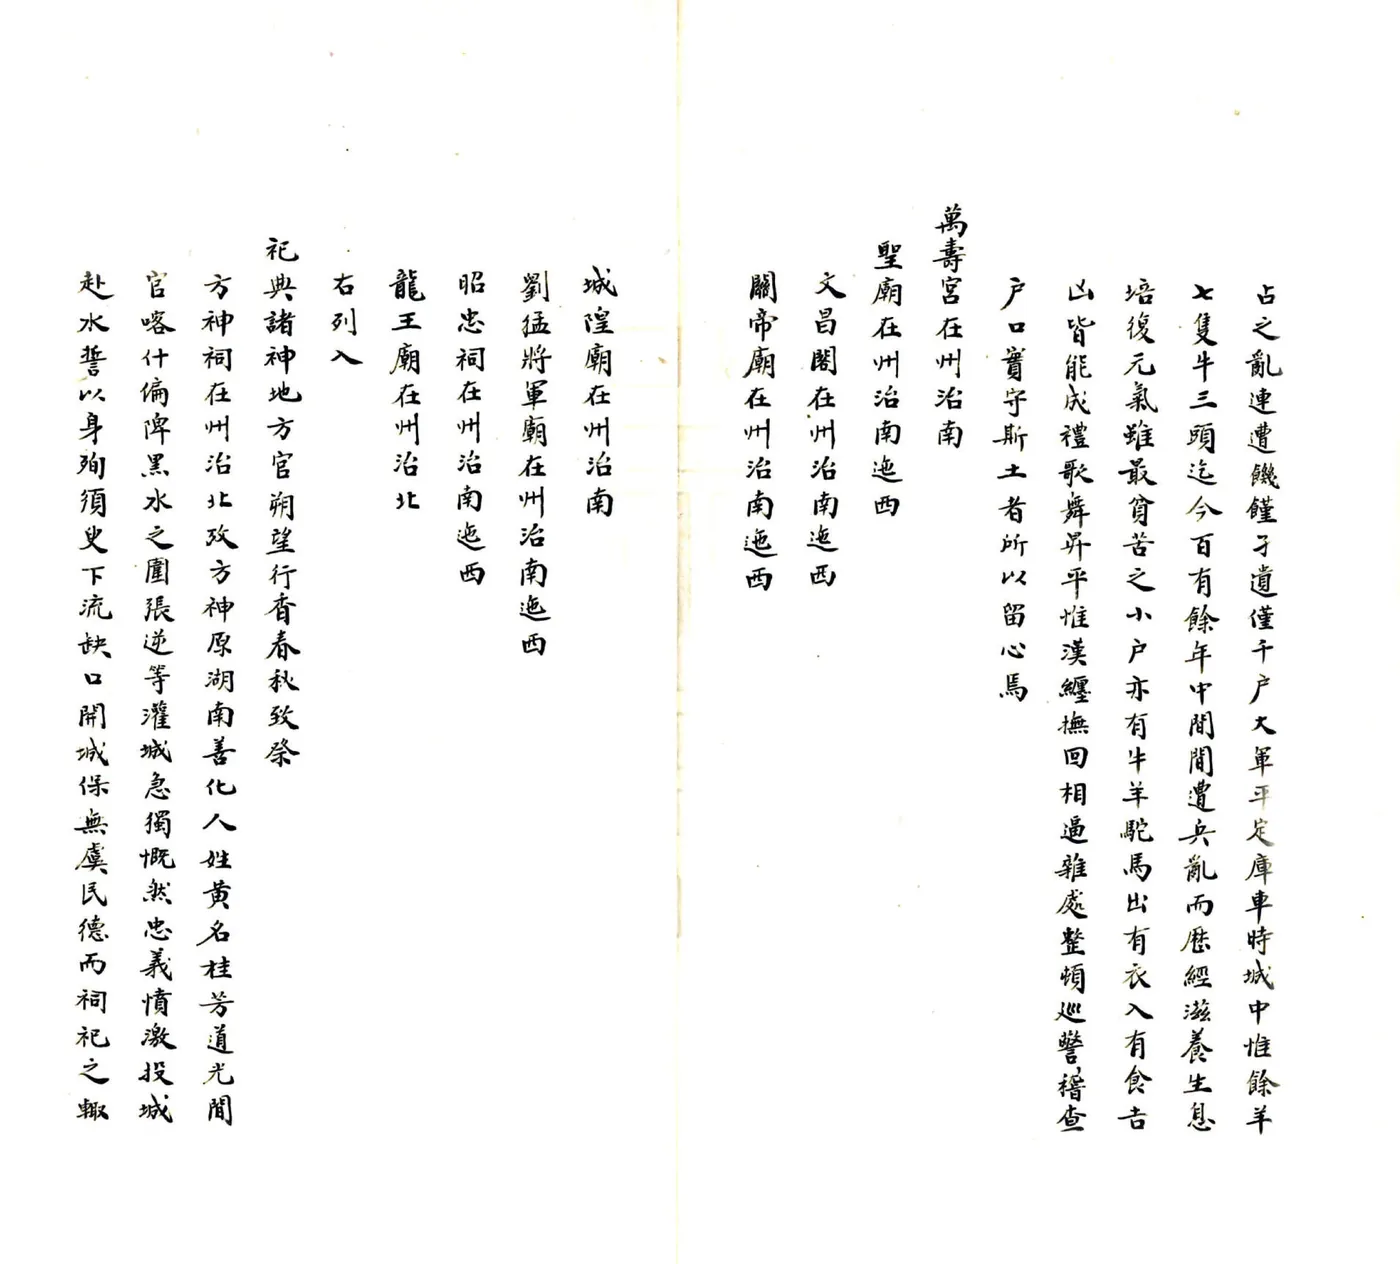 占之亂連遭饑饉孑遺僅千户大軍平定庫車時城中惟餘羊
七隻牛三頭迄今百有餘年中間間遭兵亂而歷經滋養生息
培復元氣雖最貧苦之小户亦有牛羊駝馬出有衣入有食吉
凶皆能成禮歌舞昇平惟漢纏撫回相逼雜處整頓巡警稽查
户口實守斯土者所以留心焉
萬壽宮在州治南
聖廟在州治南迤西
文昌閣在州治南迤西
關帝廟在州治南迤西
城隍廟在州治南
劉猛將軍廟在州治南迤西
昭忠祠在州治南迤西
龍王廟在州治北
右列入
祀典諸神地方官朔望行香春秋致祭
方神祠在州治北攷方神原湖南善化人姓黄名桂芳道光間
官喀什偏裨黑水之圍張逆等灌城急獨慨然忠義憤激投城
赴水誓以身殉須臾下流缺口開城保無虞民德而祠祀之輙